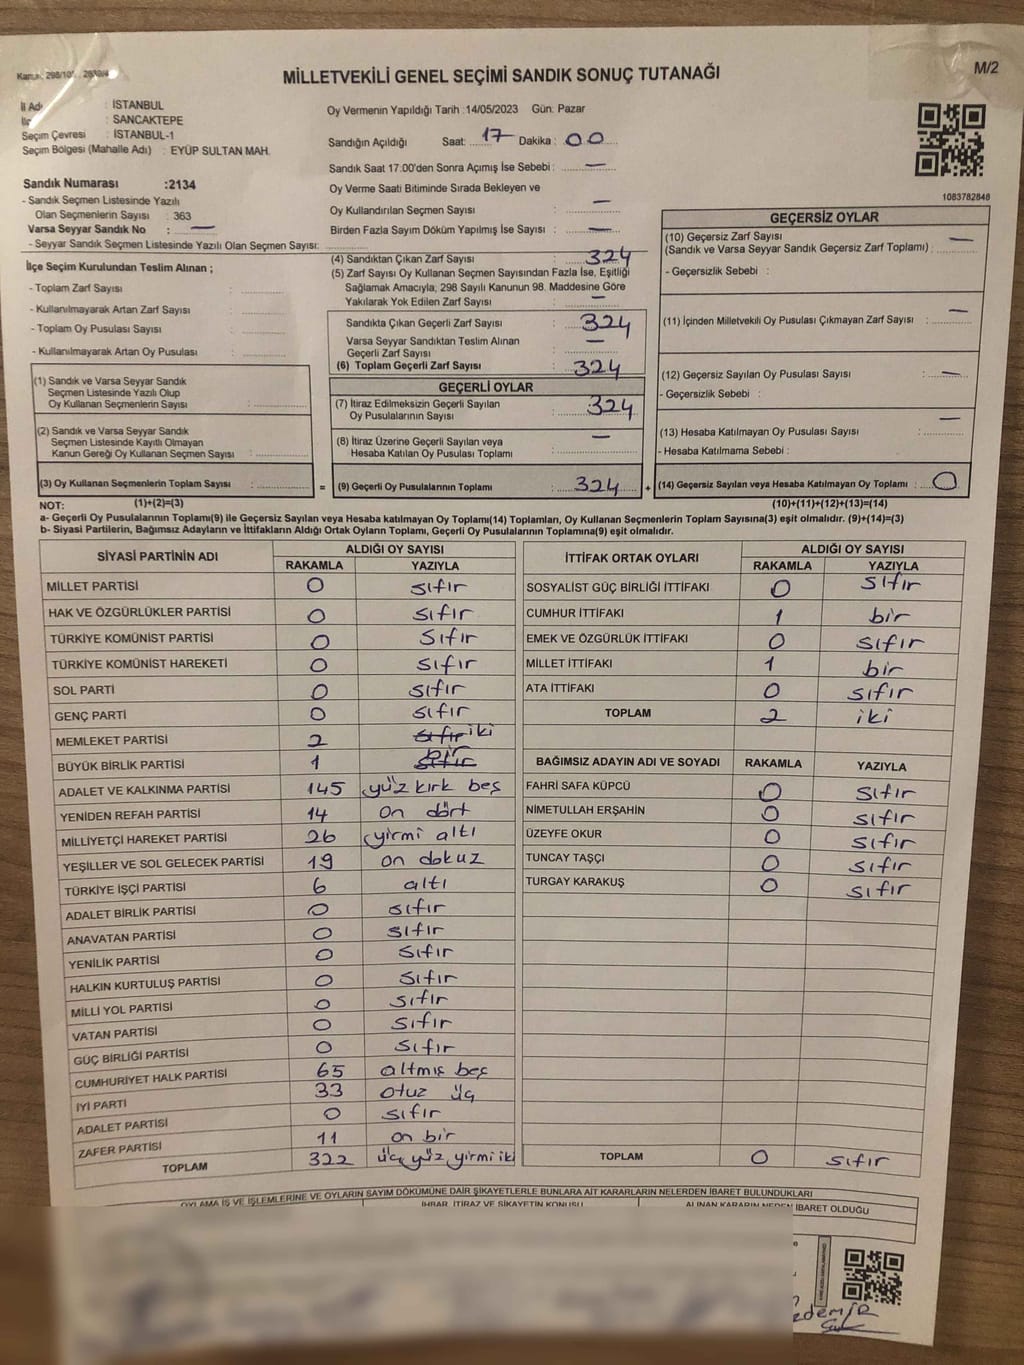 Kanun: 298/105, 2839/4
MİLLETVEKİLİ GENEL SEÇİMİ SANDIK SONUÇ TUTANAĞI
M/2
İl Adı : İSTANBUL
: SANCAKTEPE
Seçim Çevresi : İSTANBUL-1
Seçim Bölgesi (Mahalle Adı) : EYÜP SULTAN MAH.
Sandık Numarası :2134
- Sandık Seçmen Listesinde Yazılı
Olan Seçmenlerin Sayısı : 363
Varsa Seyyar Sandık No : —
- Seyyar Sandık Seçmen Listesinde Yazılı Olan Seçmen Sayısı:
Oy Vermenin Yapıldığı Tarih :14/05/2023 Gün: Pazar
Sandığın Açıldığı Saat: 17 Dakika : 00
Sandık Saat 17:00'den Sonra Açımış İse Sebebi : —
Oy Verme Saati Bitiminde Sırada Bekleyen ve
Oy Kullandırılan Seçmen Sayısı : —
Birden Fazla Sayım Döküm Yapılmış İse Sayısı : —
1083782848
İlçe Seçim Kurulundan Teslim Alınan ;
- Toplam Zarf Sayısı :
- Kullanılmayarak Artan Zarf Sayısı :
- Toplam Oy Pusulası Sayısı :
- Kullanılmayarak Artan Oy Pusulası :
(1) Sandık ve Varsa Seyyar Sandık
Seçmen Listesinde Yazılı Olup
Oy Kullanan Seçmenlerin Sayısı :
(2) Sandık ve Varsa Seyyar Sandık
Seçmen Listesinde Kayıtlı Olmayan
Kanun Gereği Oy Kullanan Seçmen Sayısı :
(3) Oy Kullanan Seçmenlerin Toplam Sayısı :
(4) Sandıktan Çıkan Zarf Sayısı : 324
(5) Zarf Sayısı Oy Kullanan Seçmen Sayısından Fazla İse, Eşitliği
Sağlamak Amacıyla, 298 Sayılı Kanunun 98. Maddesine Göre
Yakılarak Yok Edilen Zarf Sayısı : —
Sandıkta Çıkan Geçerli Zarf Sayısı : 324
Varsa Seyyar Sandıktan Teslim Alınan
Geçerli Zarf Sayısı : —
(6) Toplam Geçerli Zarf Sayısı : 324
GEÇERLİ OYLAR
(7) İtiraz Edilmeksizin Geçerli Sayılan
Oy Pusulalarının Sayısı : 324
(8) İtiraz Üzerine Geçerli Sayılan veya
Hesaba Katılan Oy Pusulası Toplamı : —
= (9) Geçerli Oy Pusulalarının Toplamı : 324 +
GEÇERSİZ OYLAR
(10) Geçersiz Zarf Sayısı —
(Sandık ve Varsa Seyyar Sandık Geçersiz Zarf Toplamı) :
- Geçersizlik Sebebi :
(11) İçinden Milletvekili Oy Pusulası Çıkmayan Zarf Sayısı : —
(12) Geçersiz Sayılan Oy Pusulası Sayısı : —
- Geçersizlik Sebebi :
(13) Hesaba Katılmayan Oy Pusulası Sayısı : —
- Hesaba Katılmama Sebebi :
(14) Geçersiz Sayılan veya Hesaba Katılmayan Oy Toplamı : 0
NOT: (1)+(2)=(3) (10)+(11)+(12)+(13)=(14)
a- Geçerli Oy Pusulalarının Toplamı(9) ile Geçersiz Sayılan veya Hesaba katılmayan Oy Toplamı(14) Toplamları, Oy Kullanan Seçmenlerin Toplam Sayısına(3) eşit olmalıdır. (9)+(14)=(3)
b- Siyasi Partilerin, Bağımsız Adayların ve İttifakların Aldığı Ortak Oyların Toplamı, Geçerli Oy Pusulalarının Toplamına(9) eşit olmalıdır.
SİYASİ PARTİNİN ADI ALDIĞI OY SAYISI
RAKAMLA YAZIYLA
MİLLET PARTİSİ 0 sıfır
HAK VE ÖZGÜRLÜKLER PARTİSİ 0 sıfır
TÜRKİYE KOMÜNİST PARTİSİ 0 sıfır
TÜRKİYE KOMÜNİST HAREKETİ 0 sıfır
SOL PARTİ 0 sıfır
GENÇ PARTİ 0 sıfır
MEMLEKET PARTİSİ 2 sıfır iki
BÜYÜK BİRLİK PARTİSİ 1 bir sıfır
ADALET VE KALKINMA PARTİSİ 145 yüz kırk beş
YENİDEN REFAH PARTİSİ 14 on dört
MİLLİYETÇİ HAREKET PARTİSİ 26 yirmi altı
YEŞİLLER VE SOL GELECEK PARTİSİ 19 on dokuz
TÜRKİYE İŞÇİ PARTİSİ 6 altı
ADALET BİRLİK PARTİSİ 0 sıfır
ANAVATAN PARTİSİ 0 sıfır
YENİLİK PARTİSİ 0 sıfır
HALKIN KURTULUŞ PARTİSİ 0 sıfır
MİLLİ YOL PARTİSİ 0 sıfır
VATAN PARTİSİ 0 sıfır
GÜÇ BİRLİĞİ PARTİSİ 0 sıfır
CUMHURİYET HALK PARTİSİ 65 altmış beş
İYİ PARTİ 33 otuz üç
ADALET PARTİSİ 0 sıfır
ZAFER PARTİSİ 11 on bir
TOPLAM 322 üç yüz yirmi iki
İTTİFAK ORTAK OYLARI ALDIĞI OY SAYISI
RAKAMLA YAZIYLA
SOSYALİST GÜÇ BİRLİĞİ İTTİFAKI 0 sıfır
CUMHUR İTTİFAKI 1 bir
EMEK VE ÖZGÜRLÜK İTTİFAKI 0 sıfır
MİLLET İTTİFAKI 1 bir
ATA İTTİFAKI 0 sıfır
TOPLAM 2 iki
BAĞIMSIZ ADAYIN ADI VE SOYADI RAKAMLA YAZIYLA
FAHRİ SAFA KÜPCÜ 0 sıfır
NİMETULLAH ERŞAHİN 0 sıfır
ÜZEYFE OKUR 0 sıfır
TUNCAY TAŞÇI 0 sıfır
TURGAY KARAKUŞ 0 sıfır
TOPLAM 0 sıfır
OYLAMA İŞ VE İŞLEMLERİNE VE OYLARIN SAYIM DÖKÜMÜNE DAİR ŞİKAYETLERLE BUNLARA AİT KARARLARIN NELERDEN İBARET BULUNDUKLARI
İHBAR, İTİRAZ VE ŞİKAYETİN KONUSU ALINAN KARARIN NEDEN İBARET OLDUĞU